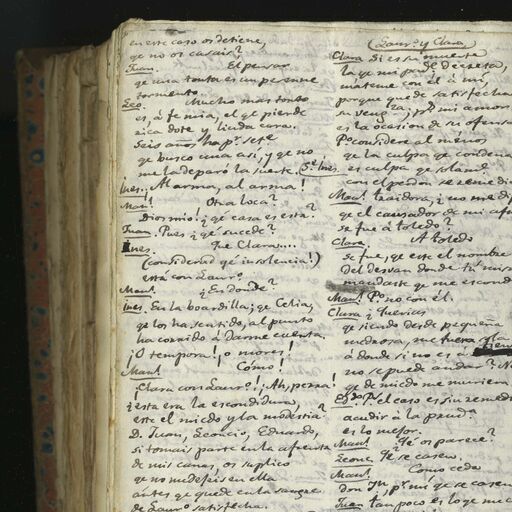 en este caso os detiene,
qe no os casais?
Juan. El pensar
qe una tonta es un perenne
tormento.
Leo. Mucho mas tonto
es, á fe mia, el qe pierde
rica dote y linda cara.
Seis años ha pr. sete
qe busco una asi, y qe no
me la deparó la suerte. Sª. Ines
Ines. Al arma, al arma!
Man! Otra loca?
Dios mio! ¿qe casa es esta?
Juan. Pues ¿qe sucede?
Ines. Que Clara....
(considerad qé insolencia!)
está con Lauro.
Man! ¿En donde?
Ines. En la boardilla; qe Celia,
qe los ha sentido, al punto
ha corrido á darme cuenta.
¡O tempora!, o mores!
Man! Como!
¡Clara con Lauro! ¡Ah, perra!
¿esta era la escondidura,
este el miedo y la modestia?
D. Juan, Leoncio, Eduardo,
si tomais parte en la afrenta
de mis canas, os suplico
qe no me dejeis en ella
antes qe quede en la sangre
de Lauro satisfecha.
(Lauro. y Clara)
Clara. Si es su muerte
la qe mi padre decreta,
mateme con él á mí,
porque quede satisfecha
su venganza; pr. mi amor
es la ocasion de su ofensa.
Pº considere al ménos
qe la culpa qe condena
es culpa qe solamte.
con el perdon se remedia
Man! traidora, ¿no me dij
qe el causador de mi afre
se fue á toledo?
Clara. A toledo
se fue, qe este el nombre
del desvan donde tú mism
mandaste qe me escond
Man! Pº no con él.
Clara ¿Querias
qe siendo desde pequeña
medrosa, me fuera sola
á donde si no es á
no se puede andar?
qe de miedo me muriera
Edo. Pº el caso es sin remedi
acudir á la pruda.
es lo mejor.
Man! Qé os parece?
Leonc. Qe se casen.
Man! Como ceda
don Jn., pr. mi qe se casen
Juan tampoco es lo qe me c